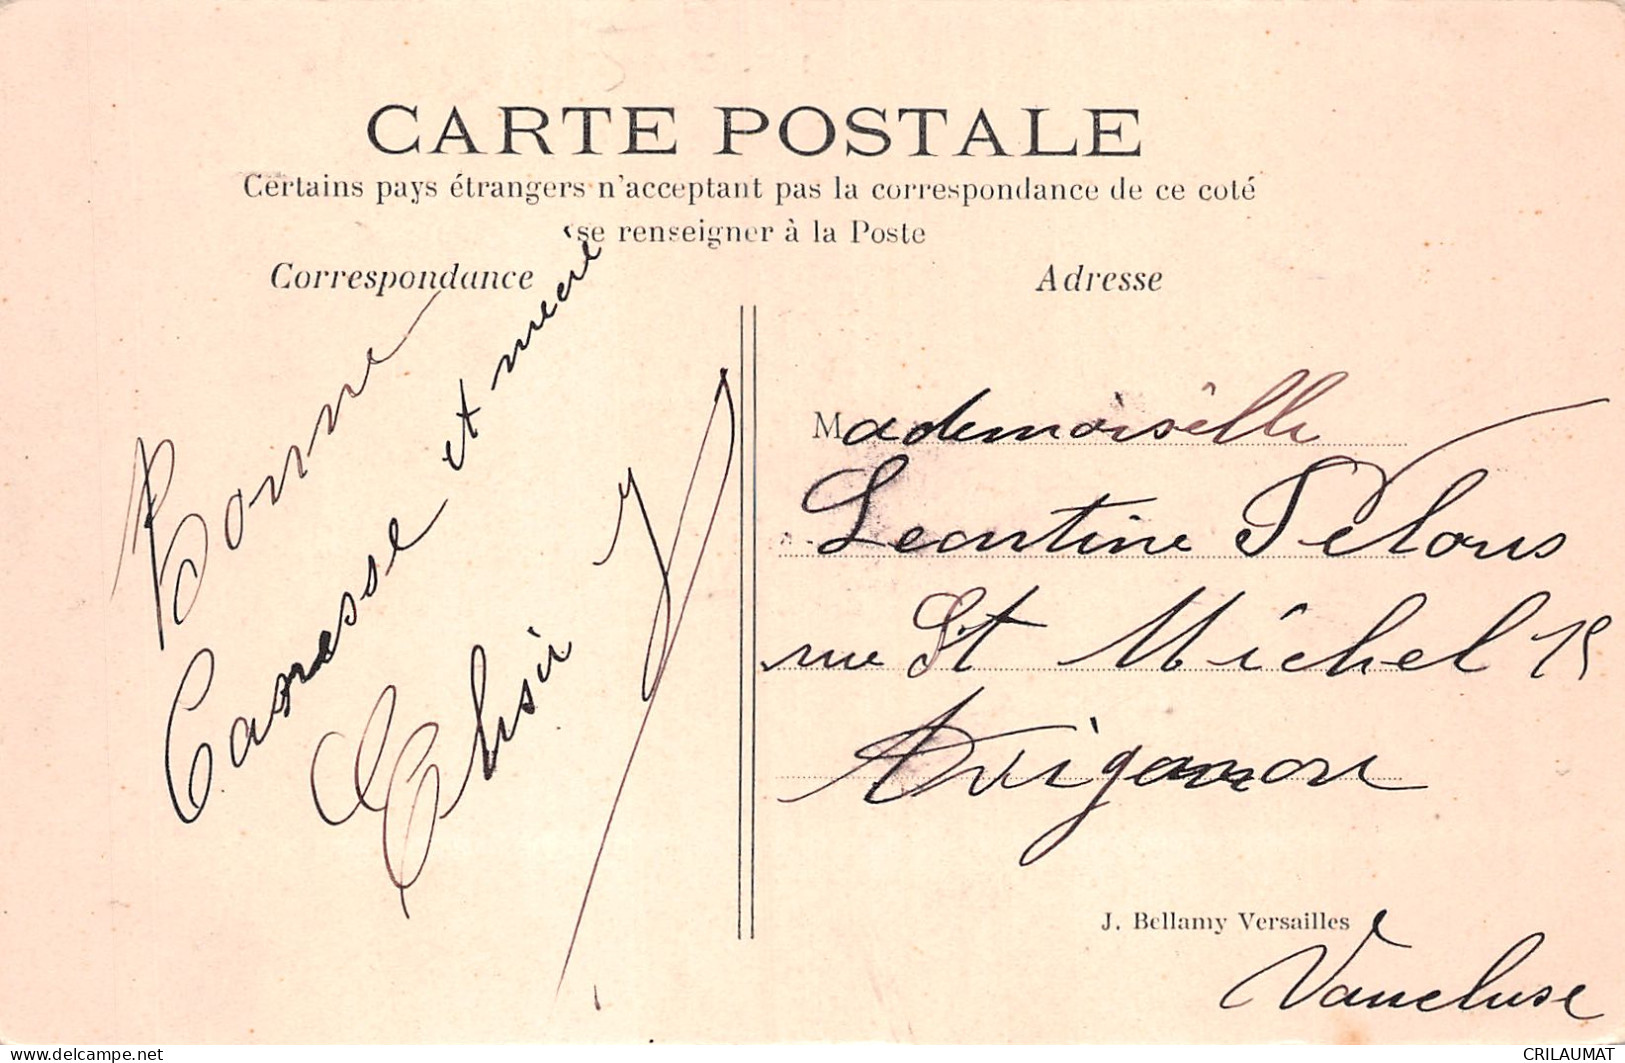 CARTE POSTALE
Certains pays étrangers n'acceptant pas la correspondance de ce coté
se renseigner à la Poste
Correspondance
Adresse
Bonne
Caresse et
Mademoiselle
Leontine Pelous
rue St Michel 15
Avignon
J. Bellamy Versailles
Vaucluse
www.delcampe.net
CRILAUMAT